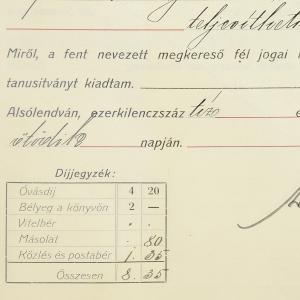 teljesíthető
Miről, a fent nevezett megkereső fél jogai
tanusitványt kiadtam.
Alsólendván, ezerkilenczszáz tíz
ötödik napján.
Díjjegyzék:
Óvásdíj 4 20
Bélyeg a könyvön 2 —
Vitelbér . .
Másolat . 80
Közlés és postabér 1. 35
Összesen 8. 35